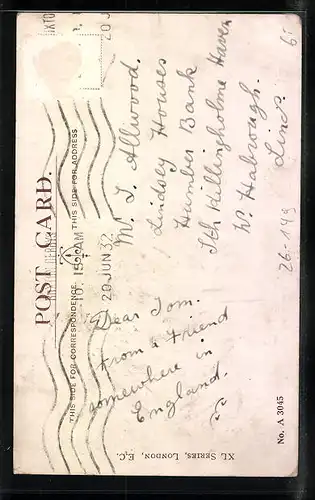 POST CARD.
THIS SIDE FOR CORRESPONDENCE.
THIS SIDE FOR ADDRESS
20 JUN 32
Mr. T. Allwood.
Lindsey Houses
Humber Bank
Sth Killingholme Haven
Nr. Habrough.
Lincs.
Dear Tom.
From a Friend
somewhere in
England.
26-199
6
XL SERIES, LONDON, E.C.
No. A 3045